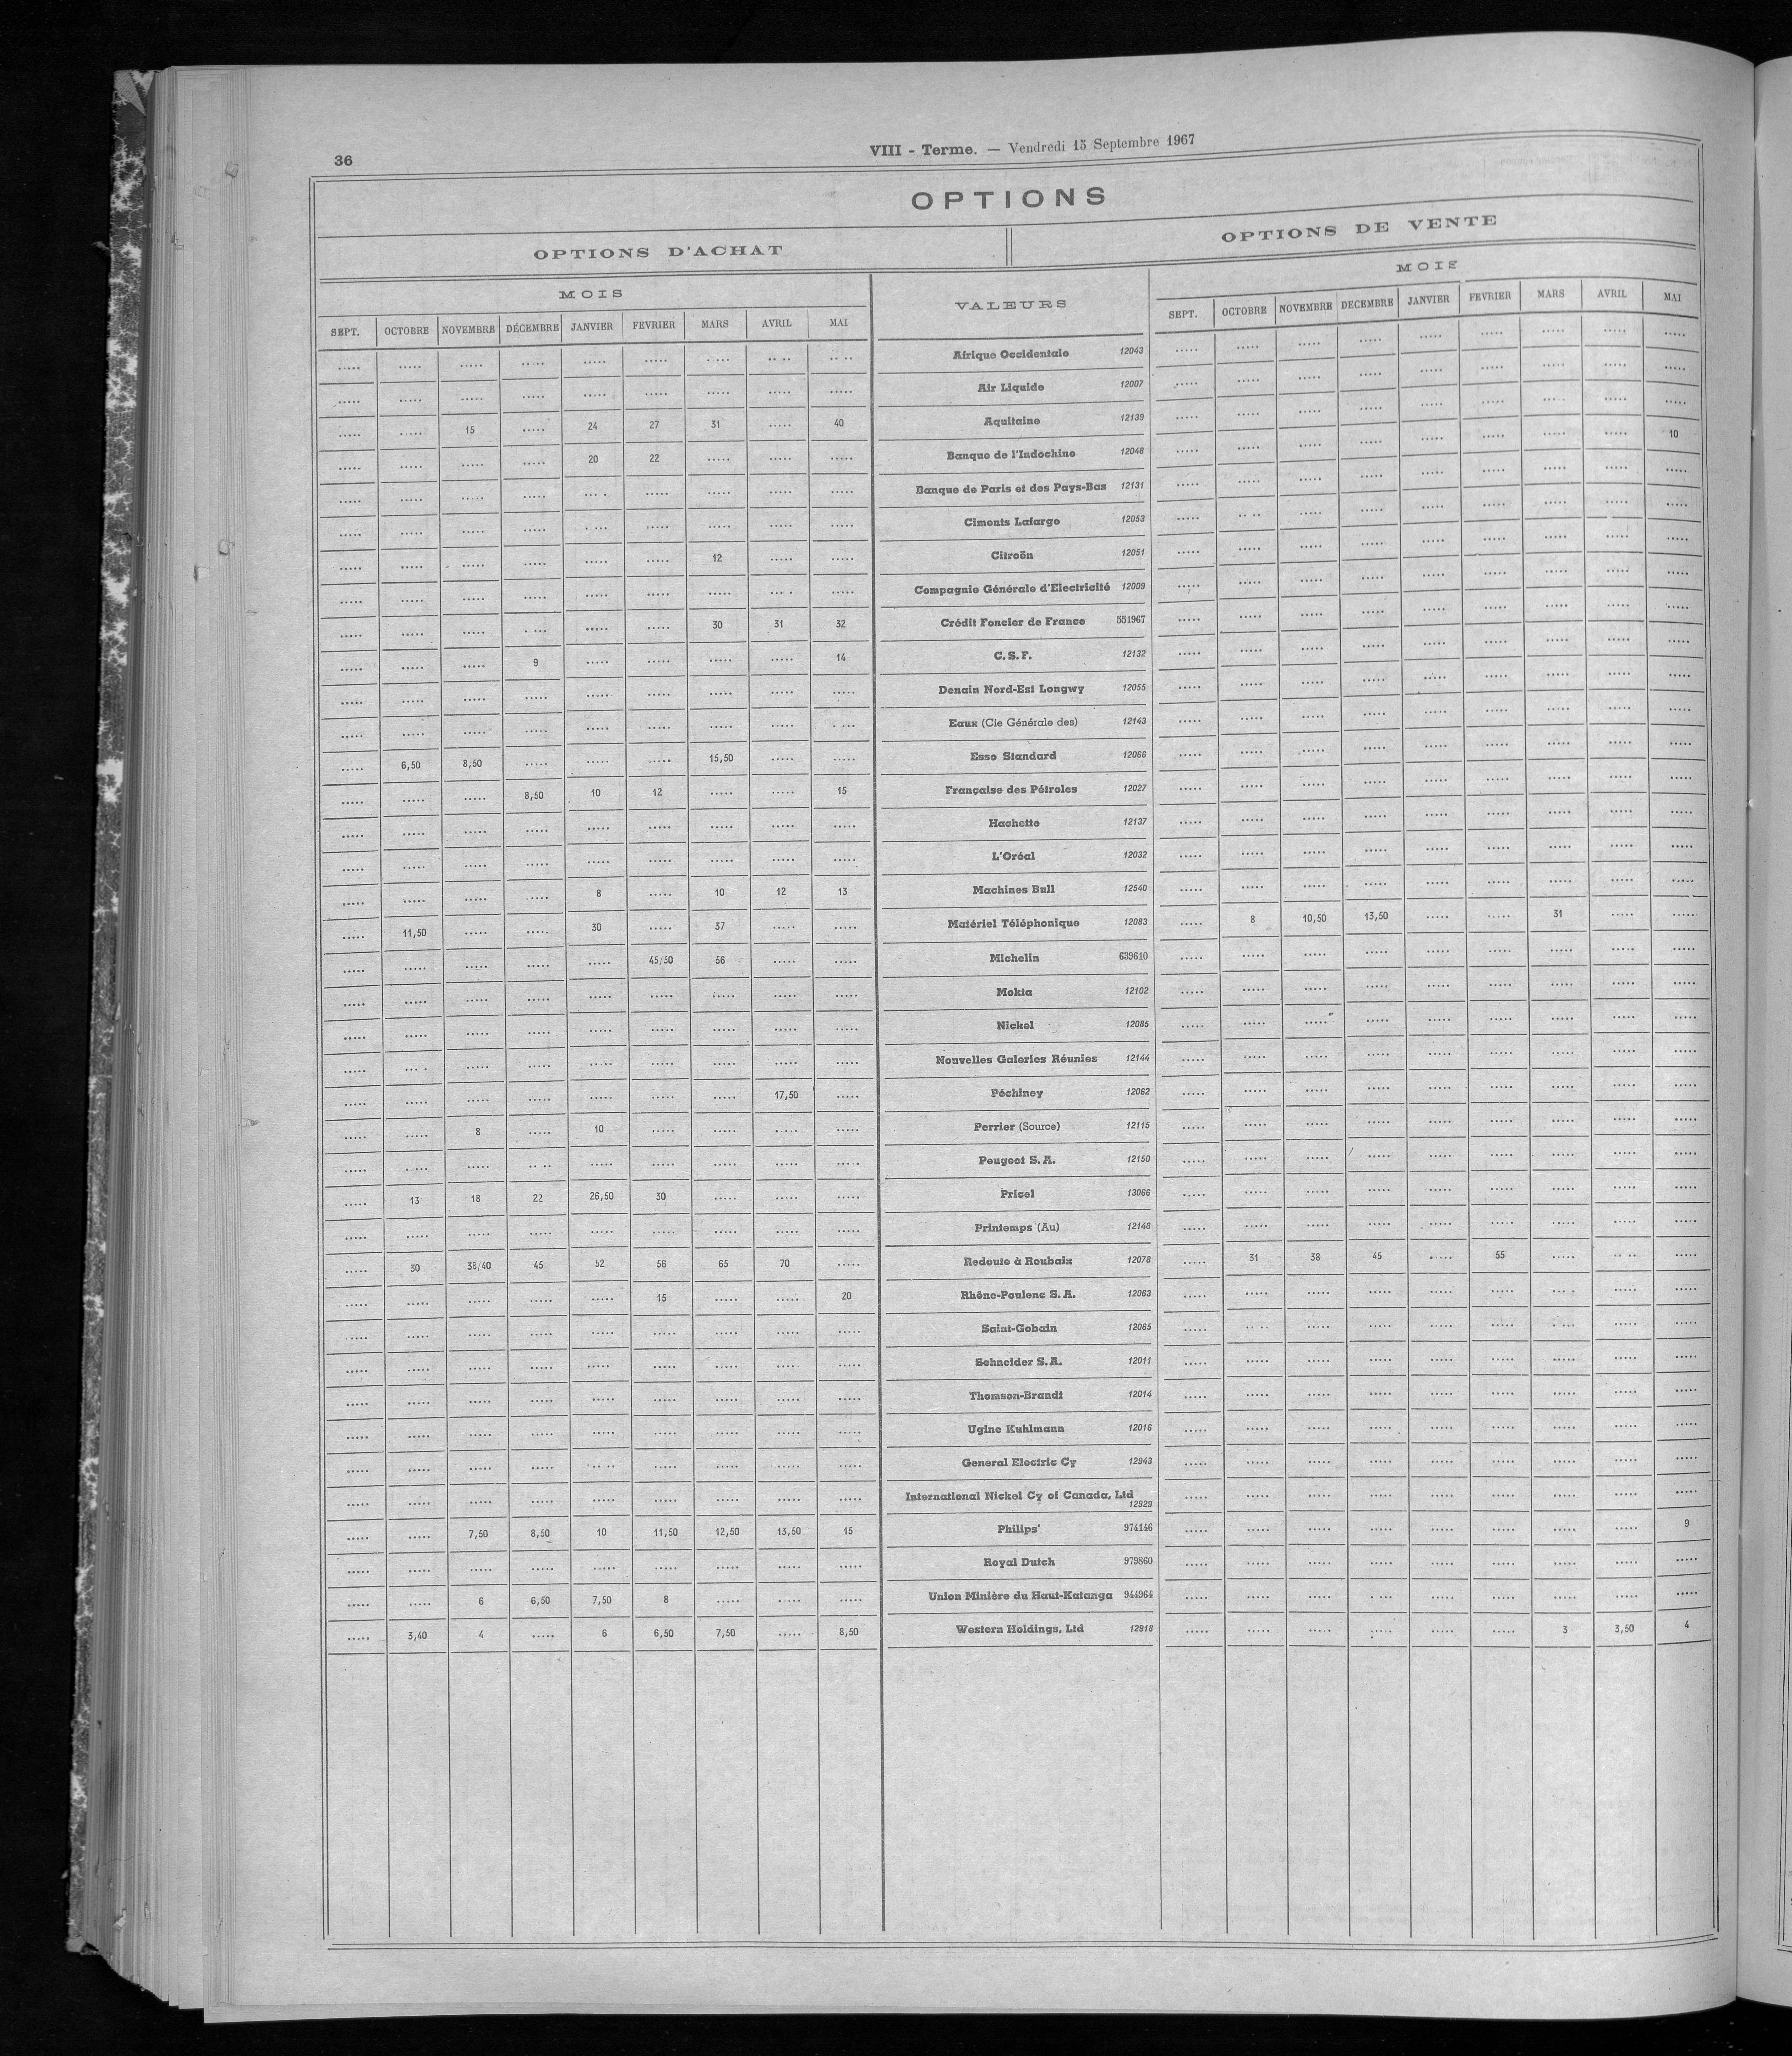 36
VIII - Terme. — Vendredi 15 Septembre 1967
OPTIONS
OPTIONS D'ACHAT OPTIONS DE VENTE
MOIS VALEURS MOIS
SEPT. OCTOBRE NOVEMBRE DÉCEMBRE JANVIER FEVRIER MARS AVRIL MAI SEPT. OCTOBRE NOVEMBRE DECEMBRE JANVIER FEVRIER MARS AVRIL MAI
..... ..... ..... ..... ..... ..... ..... ..... ..... Afrique Occidentale 12043 ..... ..... ..... ..... ..... ..... ..... ..... .....
..... ..... ..... ..... ..... ..... ..... ..... ..... Air Liquide 12007 ..... ..... ..... ..... ..... ..... ..... ..... .....
..... ..... 15 ..... 24 27 31 ..... 40 Aquitaine 12139 ..... ..... ..... ..... ..... ..... ..... ..... 10
..... ..... ..... ..... 20 22 ..... ..... ..... Banque de l'Indochine 12048 ..... ..... ..... ..... ..... ..... ..... ..... .....
..... ..... ..... ..... ..... ..... ..... ..... ..... Banque de Paris et des Pays-Bas 12131 ..... ..... ..... ..... ..... ..... ..... ..... .....
..... ..... ..... ..... ..... ..... ..... ..... ..... Ciments Lafarge 12053 ..... ..... ..... ..... ..... ..... ..... ..... .....
..... ..... ..... ..... ..... ..... 12 ..... ..... Citroën 12051 ..... ..... ..... ..... ..... ..... ..... ..... .....
..... ..... ..... ..... ..... ..... ..... ..... ..... Compagnie Générale d'Electricité 12009 ..... ..... ..... ..... ..... ..... ..... ..... .....
..... ..... ..... ..... ..... ..... 30 31 32 Crédit Foncier de France 551967 ..... ..... ..... ..... ..... ..... ..... ..... .....
..... ..... ..... 9 ..... ..... ..... ..... 14 C.S.F. 12132 ..... ..... ..... ..... ..... ..... ..... ..... .....
..... ..... ..... ..... ..... ..... ..... ..... ..... Denain Nord-Est Longwy 12055 ..... ..... ..... ..... ..... ..... ..... ..... .....
..... ..... ..... ..... ..... ..... ..... ..... ..... Eaux (Cie Générale des) 12143 ..... ..... ..... ..... ..... ..... ..... ..... .....
..... 6,50 8,50 ..... ..... ..... 15,50 ..... ..... Esso Standard 12066 ..... ..... ..... ..... ..... ..... ..... ..... .....
..... ..... ..... 8,50 10 12 ..... ..... 15 Française des Pétroles 12027 ..... ..... ..... ..... ..... ..... ..... ..... .....
..... ..... ..... ..... ..... ..... ..... ..... ..... Hachette 12137 ..... ..... ..... ..... ..... ..... ..... ..... .....
..... ..... ..... ..... ..... ..... ..... ..... ..... L'Oréal 12032 ..... ..... ..... ..... ..... ..... ..... ..... .....
..... ..... ..... ..... 8 ..... 10 12 13 Machines Bull 12540 ..... ..... ..... ..... ..... ..... ..... ..... .....
..... 11,50 ..... ..... 30 ..... 37 ..... ..... Matériel Téléphonique 12083 ..... 8 10,50 13,50 ..... ..... 31 ..... .....
..... ..... ..... ..... ..... 45/50 56 ..... ..... Michelin 639610 ..... ..... ..... ..... ..... ..... ..... ..... .....
..... ..... ..... ..... ..... ..... ..... ..... ..... Mokta 12102 ..... ..... ..... ..... ..... ..... ..... ..... .....
..... ..... ..... ..... ..... ..... ..... ..... ..... Nickel 12085 ..... ..... ..... ..... ..... ..... ..... ..... .....
..... ..... ..... ..... ..... ..... ..... ..... ..... Nouvelles Galeries Réunies 12144 ..... ..... ..... ..... ..... ..... ..... ..... .....
..... ..... ..... ..... ..... ..... ..... 17,50 ..... Péchiney 12062 ..... ..... ..... ..... ..... ..... ..... ..... .....
..... ..... 8 ..... 10 ..... ..... ..... ..... Perrier (Source) 12115 ..... ..... ..... ..... ..... ..... ..... ..... .....
..... ..... ..... ..... ..... ..... ..... ..... ..... Peugeot S.A. 12150 ..... ..... ..... ..... ..... ..... ..... ..... .....
..... 13 18 22 26,50 30 ..... ..... ..... Pricel 13066 ..... ..... ..... ..... ..... ..... ..... ..... .....
..... ..... ..... ..... ..... ..... ..... ..... ..... Printemps (Au) 12148 ..... ..... ..... ..... ..... ..... ..... ..... .....
..... 30 38/40 45 52 56 65 70 ..... Redoute à Roubaix 12078 ..... 31 38 45 ..... 55 ..... ..... .....
..... ..... ..... ..... ..... 15 ..... ..... 20 Rhône-Poulenc S.A. 12063 ..... ..... ..... ..... ..... ..... ..... ..... .....
..... ..... ..... ..... ..... ..... ..... ..... ..... Saint-Gobain 12065 ..... ..... ..... ..... ..... ..... ..... ..... .....
..... ..... ..... ..... ..... ..... ..... ..... ..... Schneider S.A. 12011 ..... ..... ..... ..... ..... ..... ..... ..... .....
..... ..... ..... ..... ..... ..... ..... ..... ..... Thomson-Brandt 12014 ..... ..... ..... ..... ..... ..... ..... ..... .....
..... ..... ..... ..... ..... ..... ..... ..... ..... Ugine Kuhlmann 12016 ..... ..... ..... ..... ..... ..... ..... ..... .....
..... ..... ..... ..... ..... ..... ..... ..... ..... General Electric Cy 12943 ..... ..... ..... ..... ..... ..... ..... ..... .....
..... ..... ..... ..... ..... ..... ..... ..... ..... International Nickel Cy of Canada, Ltd 12929 ..... ..... ..... ..... ..... ..... ..... ..... .....
..... ..... 7,50 8,50 10 11,50 12,50 13,50 15 Philips' 974146 ..... ..... ..... ..... ..... ..... ..... ..... 9
..... ..... ..... ..... ..... ..... ..... ..... ..... Royal Dutch 979860 ..... ..... ..... ..... ..... ..... ..... ..... .....
..... ..... 6 6,50 7,50 8 ..... ..... ..... Union Minière du Haut-Katanga 944964 ..... ..... ..... ..... ..... ..... ..... ..... .....
..... 3,40 4 ..... 6 6,50 7,50 ..... 8,50 Western Holdings, Ltd 12918 ..... ..... ..... ..... ..... ..... 3 3,50 4